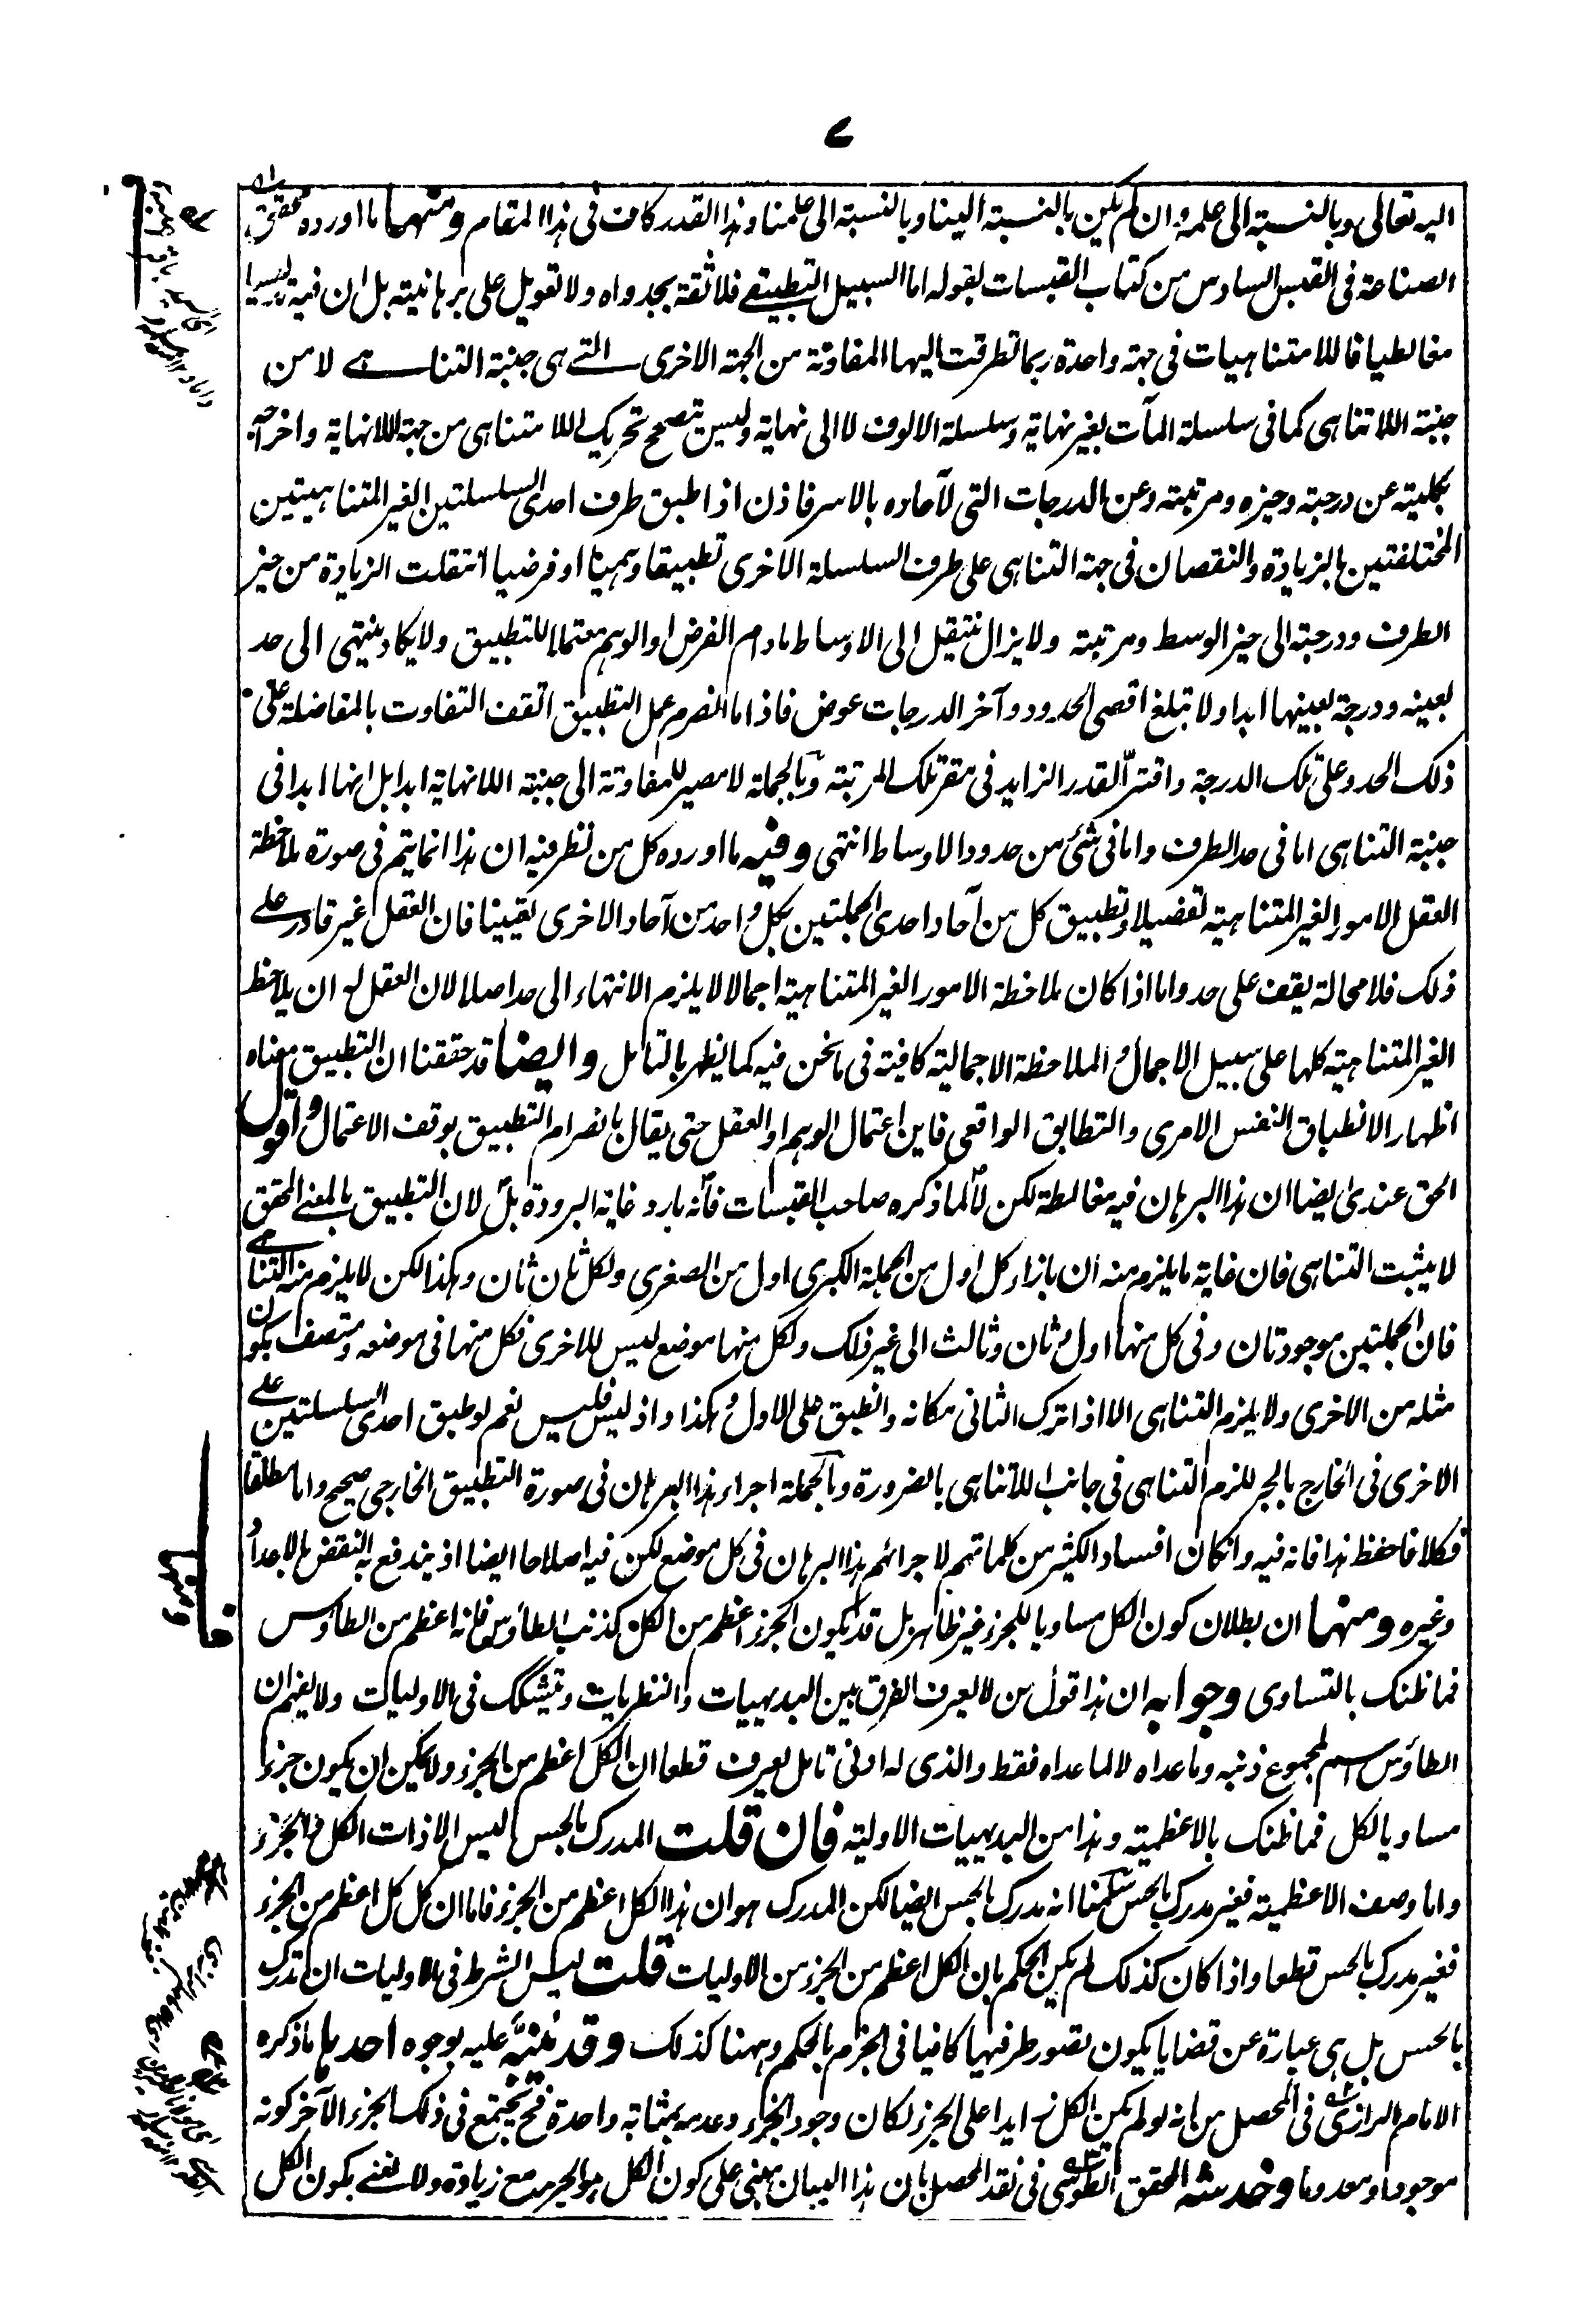 ٧
اليه تعالى وبالنسبة الى علمه وان لم يكن بالنسبة الينا وبالنسبة الى علمنا وهذا القدر كاف فى هذا المقام ومنها ما اورده محقق
الصناعة فى القبس السادس من كتاب القبسات بقوله اما السبيل التطبيقے فلا ثقة بجدواه ولا تعويل على برهانيته بل ان فيه تدليسا
مغالطيا فاللامتناهيات فى جهة واحدة ربما تطرقت اليها المفاوتة من الجهة الاخرى التے هى جنبة التناهے لا من
جنبة اللاتناهى كما فى سلسلة المآت بغير نهاية وسلسلة الالوف لا الى نهاية وليس تصحح تحريك اللامتناهى من جهة اللانهاية واخراجه
بكليته عن درجته وحيزه ومرتبته وعن الدرجات التى لآحاده بالاسر فاذن اذا طبق طرف احدى السلسلتين الغير المتناهيتين
المختلفتين بالزيادة والنقصان فى جهة التناهى على طرف السلسلة الاخرى تطبيقا وهميا او فرضيا انتقلت الزيادة من حيز
الطرف ودرجته الى حيز الوسط ومرتبته ولا يزال ينتقل الى الاوساط مادام الفرض او الوهم معتملا للتطبيق ولا يكاد ينتهى الى حد
بعينه ودرجة بعينها ابدا ولا تبلغ اقصى الحدود وآخر الدرجات عوض فاذا ما انصرم عمل التطبيق اتقف التفاوت بالمفاضلة على
ذلك الحد وعلى تلك الدرجة واقتر القدر الزايد فى مقر تلك المرتبة وبالجملة لا مصير للمفاوتة الى جنبة اللانهاية ابدا بل انها ابدا فى
جنبة التناهى اما فى حد الطرف واما فى شئ من حدود الاوساط انتهى وفيه ما اورده كل من نظر فيه ان هذا انما يتم فى صورة ملاحظة
العقل الامور الغير المتناهية تفصيلا وتطبيق كل من آحاد احدى الجملتين بكل واحد من آحاد الاخرى يقينا فان العقل غير قادر علے
ذلك فلا محالة يقف على حد واما اذا كان ملاحظة الامور الغير المتناهية اجمالا لا يلزم الانتهاء الى حد اصلا لان العقل له ان يلاحظ
الغير المتناهية كلها على سبيل الاجمال والملاحظة الاجمالية كافية فى ما نحن فيه كما يظهر بالتامل وايضا قد حققنا ان التطبيق معناه
اظهار الانطباق النفس الامرى والتطابق الواقعى فاين اعتمال الوهم او العقل حتى يقال بانصرام التطبيق بوقف الاعتمال واقول
الحق عندى ايضا ان هذا البرهان فيه مغالطة لكن لا لما ذكره صاحب القبسات فانه بارد غاية البرودة بل لان التطبيق بالمعنى المحقق
لا يثبت التناهى فان غاية ما يلزم منه ان بازاء كل اول من الجملة الكبرى اول من الصغرى ولكل ثان ثان وهكذا لكن لا يلزم منه التناهے
فان الجملتين موجودتان وفى كل منهما اول وثان وثالث الى غير ذلك ولكل منها موضع ليس للاخرى فكل منها فى موضعه ومتصف بكون
مثله من الاخرى ولا يلزم التناهى الا اذا ترك الثانى مكانه وانطبق على الاول وهكذا واذ ليس فليس نعم لو طبق احدى السلسلتين علے
الاخرى فى الخارج بالجر للزم التناهى فى جانب اللاتناهى بالضرورة وبالجملة اجراء هذا البرهان فى صورة التطبيق الخارجى صحيح واما مطلقا
فكلا فاحفظ هذا فانه فيه وان كان افساد الكثير من كلماتهم لاجرائهم هذا البرهان فى كل موضع لكن فيه اصلاحا ايضا اذ يندفع به النقض بالاعداد
وغيره ومنها ان بطلان كون الكل مساويا للجزء غير ظاهر بل قد يكون الجزء اعظم من الكل كذنب الطاؤس فانه اعظم من الطاؤس
فما ظنك بالتساوى وجوابه ان هذا قول من لا يعرف الفرق بين البديهيات والنظريات ويتشكك فى الاوليات ولا يفهم ان
الطاؤس اسم لمجموع ذنبه وما عداه لا لما عداه فقط والذى له ادنى تامل يعرف قطعا ان الكل اعظم من الجزء ولا يمكن ان يكون جزء
مساويا لكل فما ظنك بالاعظمية وهذا من البديهيات الاولية فان قلت المدرك بالحس ليس الا ذات الكل والجزء
واما وصف الاعظمية فغير مدرك بالحس سلمنا انه مدرك بالحس ايضا لكن المدرك هو ان هذا الكل اعظم من الجزء فاما ان كل كل اعظم من الجزء
فغير مدرك بالحس قطعا واذا كان كذلك لم يكن الحكم بان الكل اعظم من الجزء من الاوليات قلت ليس الشرط فى الاوليات ان تدرك
بالحس بل هى عبارة عن قضايا يكون تصور طرفيها كافيا فى الجزم بالحكم وههنا كذلك وقد ينبه عليه بوجوه احدها ما ذكره
الامام الرازى فى المحصل من انه لو لم يكن الكل زايدا على الجزء لكان وجود الجزء وعدمه بمثابة واحدة فح يجتمع فى ذلك الجزء الآخر كونه
موجودا ومعدوما وخدشه المحقق الطوسى فى نقد المحصل بان هذا البيان مبنى على كون الكل هو الجزء مع زيادة ولا نعنے بكون الكل